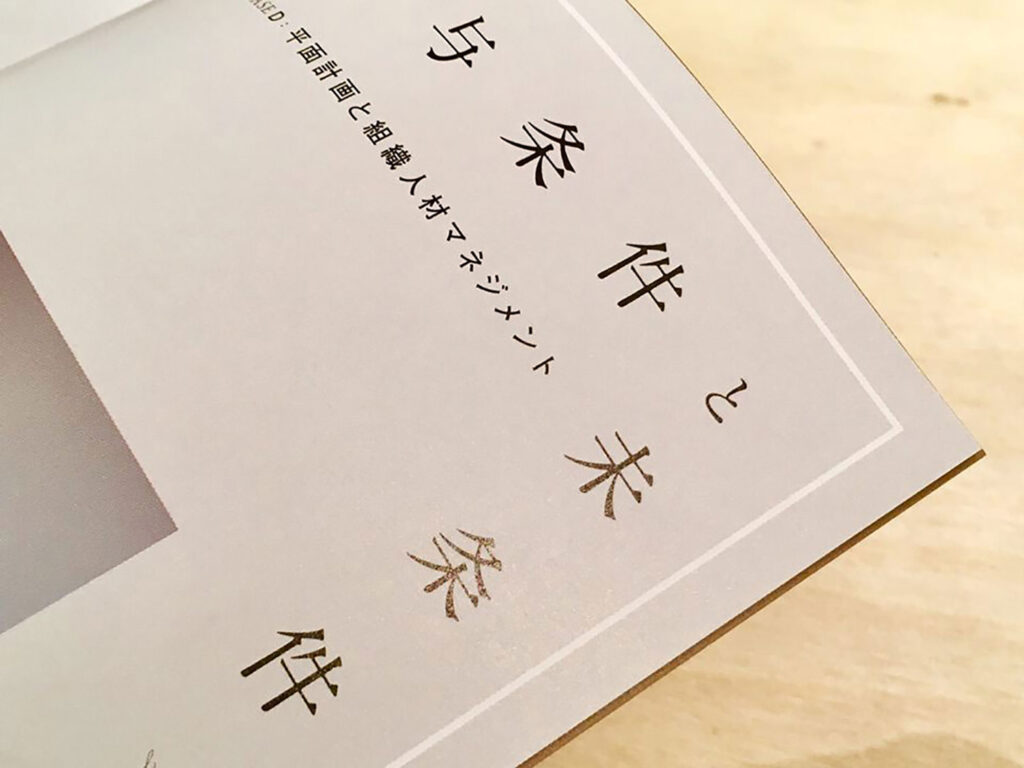 与条件と未条件
ASED：平面計画と組織人材マネジメント